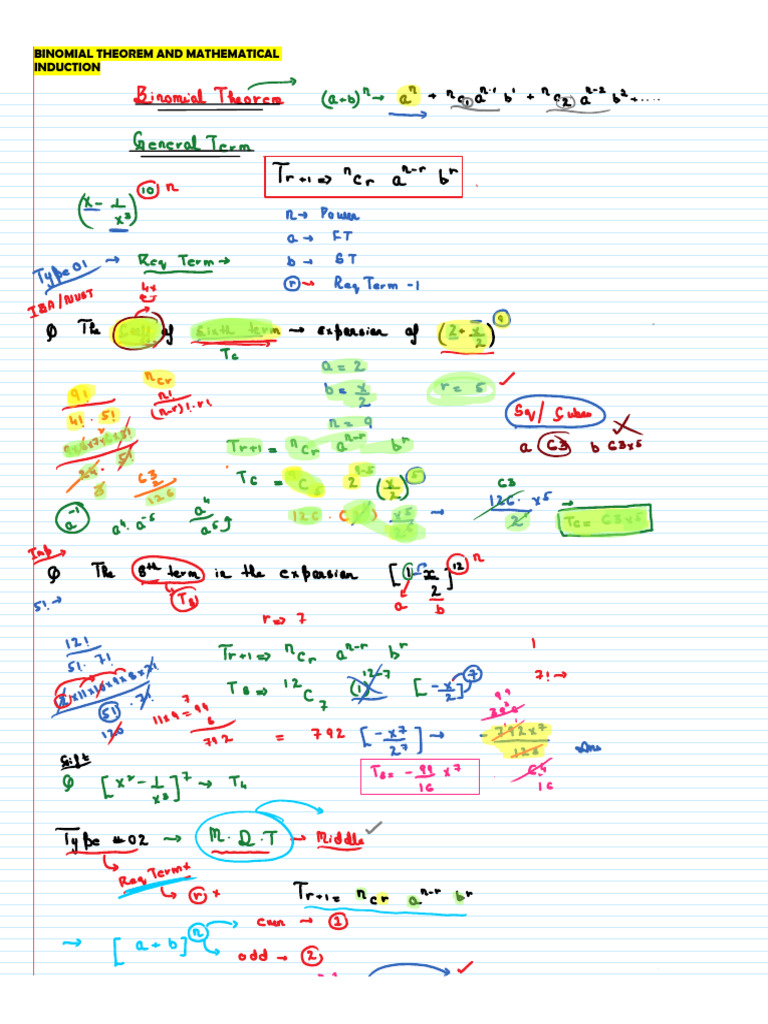 BINOMIAL THEOREM AND MATHEMATICAL
INDUCTION
Binomial Theorem (a+b)ⁿ → aⁿ + ⁿC₁ aⁿ⁻¹ b¹ + ⁿC₂ aⁿ⁻² b² + ....
General Term
Tr+1 ⇒ ⁿCr aⁿ⁻ʳ bʳ
(x - 1/x³)¹⁰ n
n → Power
a → FT
b → ST
r → Req Term - 1
Type 01 → Req Term →
IBA/NUST
4x
Q The Coeff of Sixth term → expansion of (2 + x/2)⁹
T₆
a = 2
b = x/2 r = 5
n = 9
9!/4!·5! ⁿCr n!/(n-r)!·r!
Sq/Cubes
a 63 b 63x⁵
Tr+1 = ⁿCr aⁿ⁻ʳ bʳ
T₆ = ⁹C₅ 2⁹⁻⁵ (x/2)⁵
63/2 126
63
126 · x⁵/2 →
T₆ = 63x⁵
a⁻¹ a⁴·a⁻⁵ a⁴/a⁵
Imp
Q The 8th term in the expansion [1 - x/2]¹² n
T₈ a b
5! →
r ⇒ 7
12!/5!·7!
Tr+1 ⇒ ⁿCr aⁿ⁻ʳ bʳ
1
7! →
T₈ ⇒ ¹²C₇ (1)¹²⁻⁷ [-x/2]⁷
12×11×10×9×8×7!/5!·7!
120
11×9 = 99
8
792
= 792 [-x⁷/2⁷] → - 792x⁷/128 Ans
99
64
16
T₈ = - 99/16 x⁷
Gift
Q [x² - 1/x³]⁷ → T₄
Type #02 → M.D.T → Middle
Req Term x
r x
Tr+1 = ⁿCr aⁿ⁻ʳ bʳ
→ [a+b]ⁿ
even → 1
odd → 2